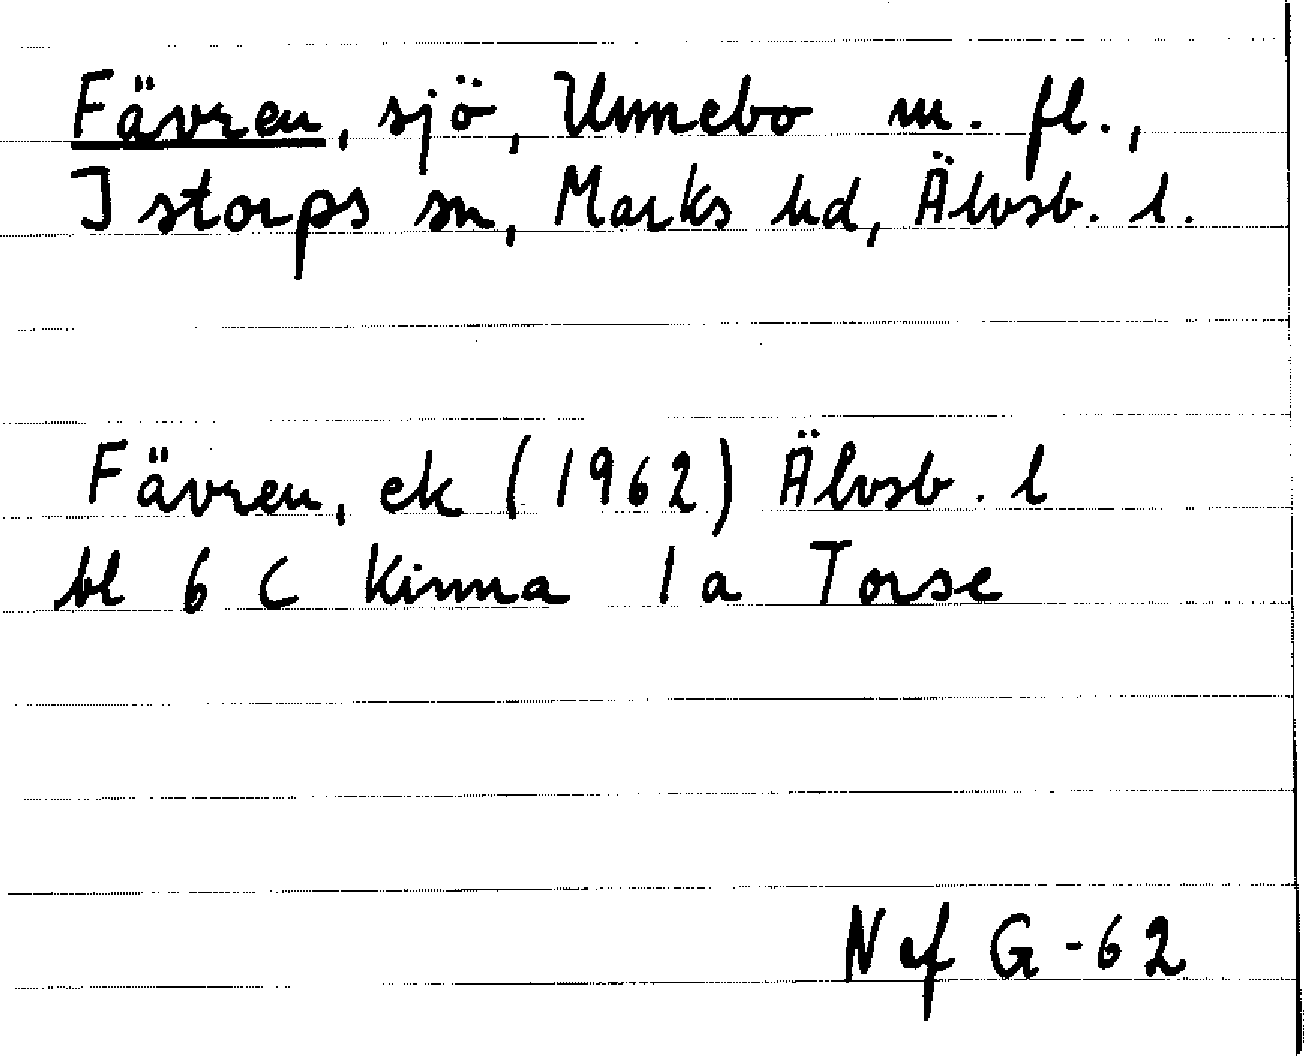 Fävren, sjö, Unnebo m. fl.,
Istorps sn, Marks hd, Älvsb. l.
Fävren, ek (1962) Älvsb. l
bl 6 C Kinna 1 a Torse
Nef G-62